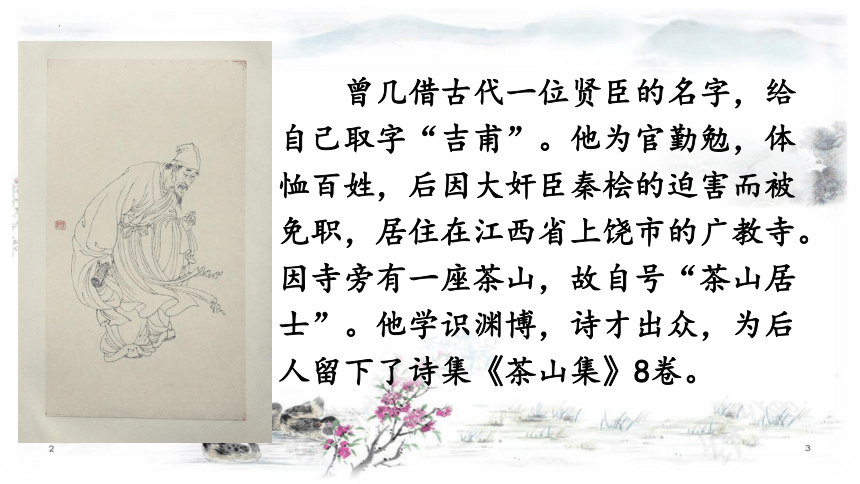 曾几借古代一位贤臣的名字，给
自己取字“吉甫”。他为官勤勉，体
恤百姓，后因大奸臣秦桧的迫害而被
免职，居住在江西省上饶市的广教寺。
因寺旁有一座茶山，故自号“茶山居
士”。他学识渊博，诗才出众，为后
人留下了诗集《茶山集》8卷。
2
3